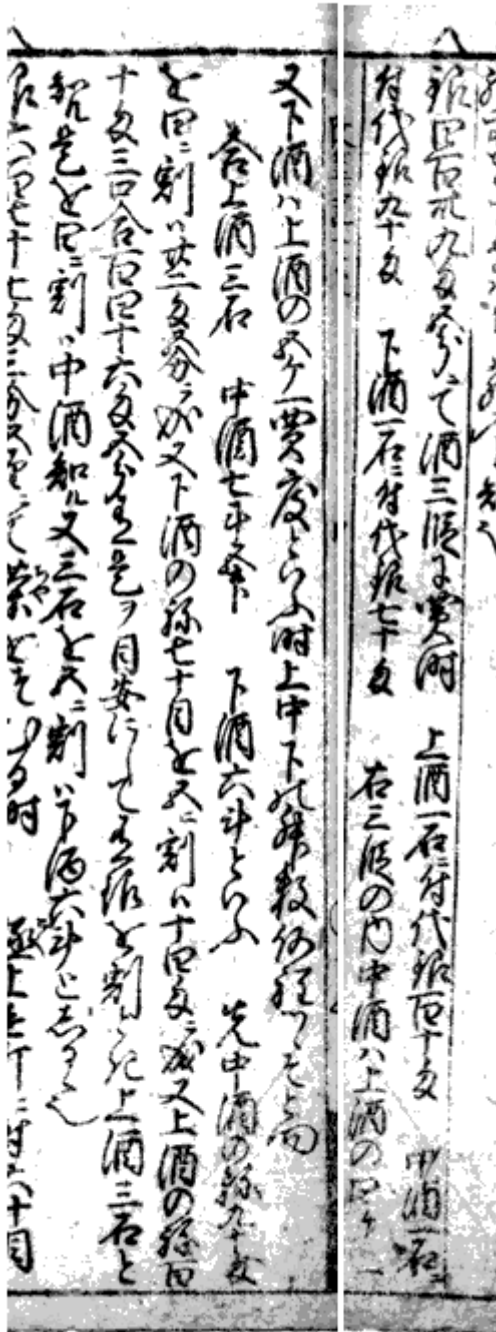 銀四百卅九匁五分にて酒三段に買時 上酒一石ニ付代銀百十匁 中酒一石ニ
付代銀九十匁 下酒一石ニ付代銀七十匁 右三段の内中酒ハ上酒の四ケ一
又下酒ハ上酒の五ケ一買度といふ時上中下の舛数何程つゝそと問
答上酒三石 中酒七斗五升 下酒六斗といふ 先中酒の銀九十匁
を四ニ割ハ廿二匁五分ニ成又下酒の銀七十目を五ニ割ハ十四匁ニ成又上酒の銀百
十匁三口合百四十六匁五分有是ヲ目安にして有銀を割 上酒三石と
知ル是を四ニ割ハ中酒知ル又三石を五ニ割ハ下酒六斗としるゝ也
銀六百七十七匁三分五厘にて茶を 時 極上壱斤ニ付六十目